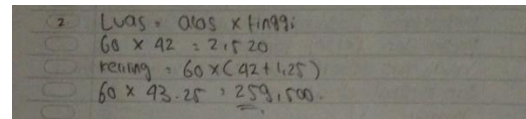 2 Luas = alas x tinggi
60 x 42 = 2,520
Keliling = 60 x (42 + 1,25)
60 x 43.25 = 259,500.